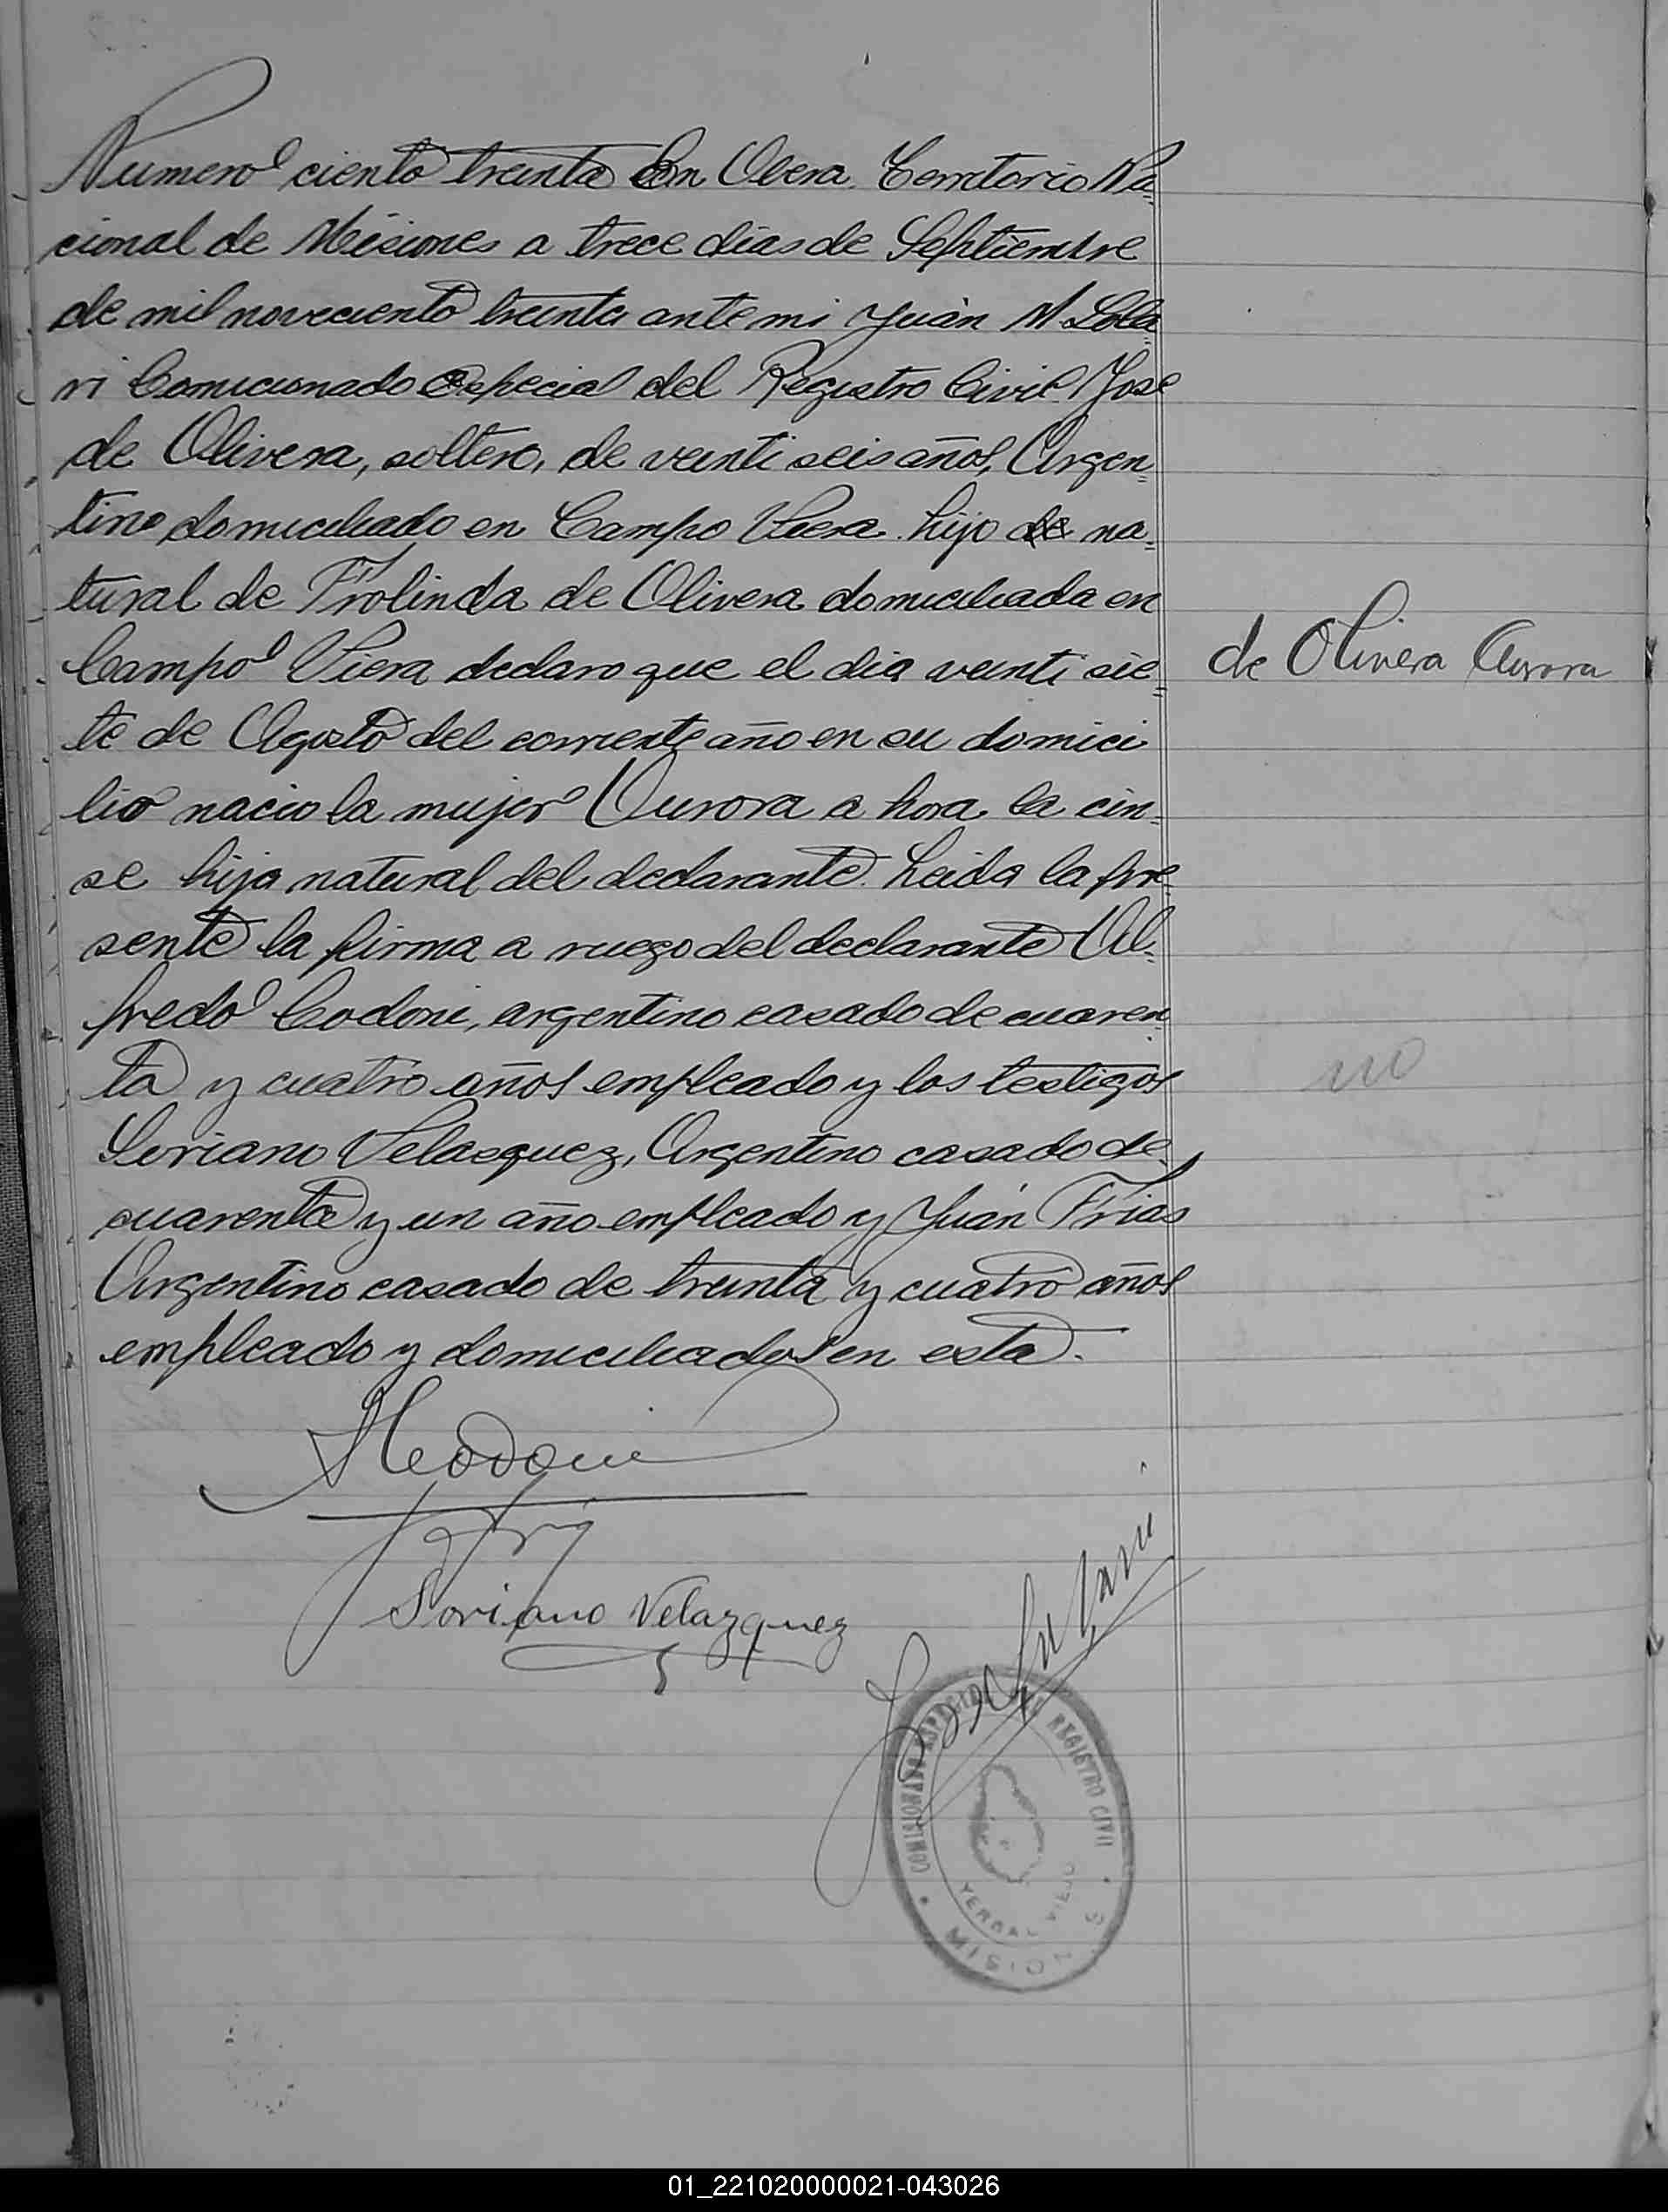 Numero ciento treinta En Obera Territorio Na=
cional de Misiones a trece dias de Septiembre
de mil noveciento treinta ante mi Juan M. Sola=
ri Comicionado Especial del Registro Civil, Jose
de Olivera, soltero, de veinti seis años, Argen=
tino domiciliado en Campo Viera. hijo de na=
tural de Frolinda de Olivera domiciliada en
Campo Viera declaro que el dia veinti sie=
de Olivera Aurora
te de Agosto del corriente año en su domici
lio nacio la mujer Aurora a hora la cin=
se hija natural del declarante. Leida la pre=
sente la firma a ruego del declarante Al=
fredo Codoni, argentino casado de cuaren
ta y cuatro años empleado y los testigos
no
Soriano Velasquez, Argentino casado de
cuarenta y un año empleado y Juan Frias
Argentino casado de treinta y cuatro años
empleado y domiciliados en esta.
Soriano Velazquez
COMISIONADO ESPECIAL DEL REGISTRO CIVIL
YERBAL VIEJO
MISIONES
01_221020000021-043026